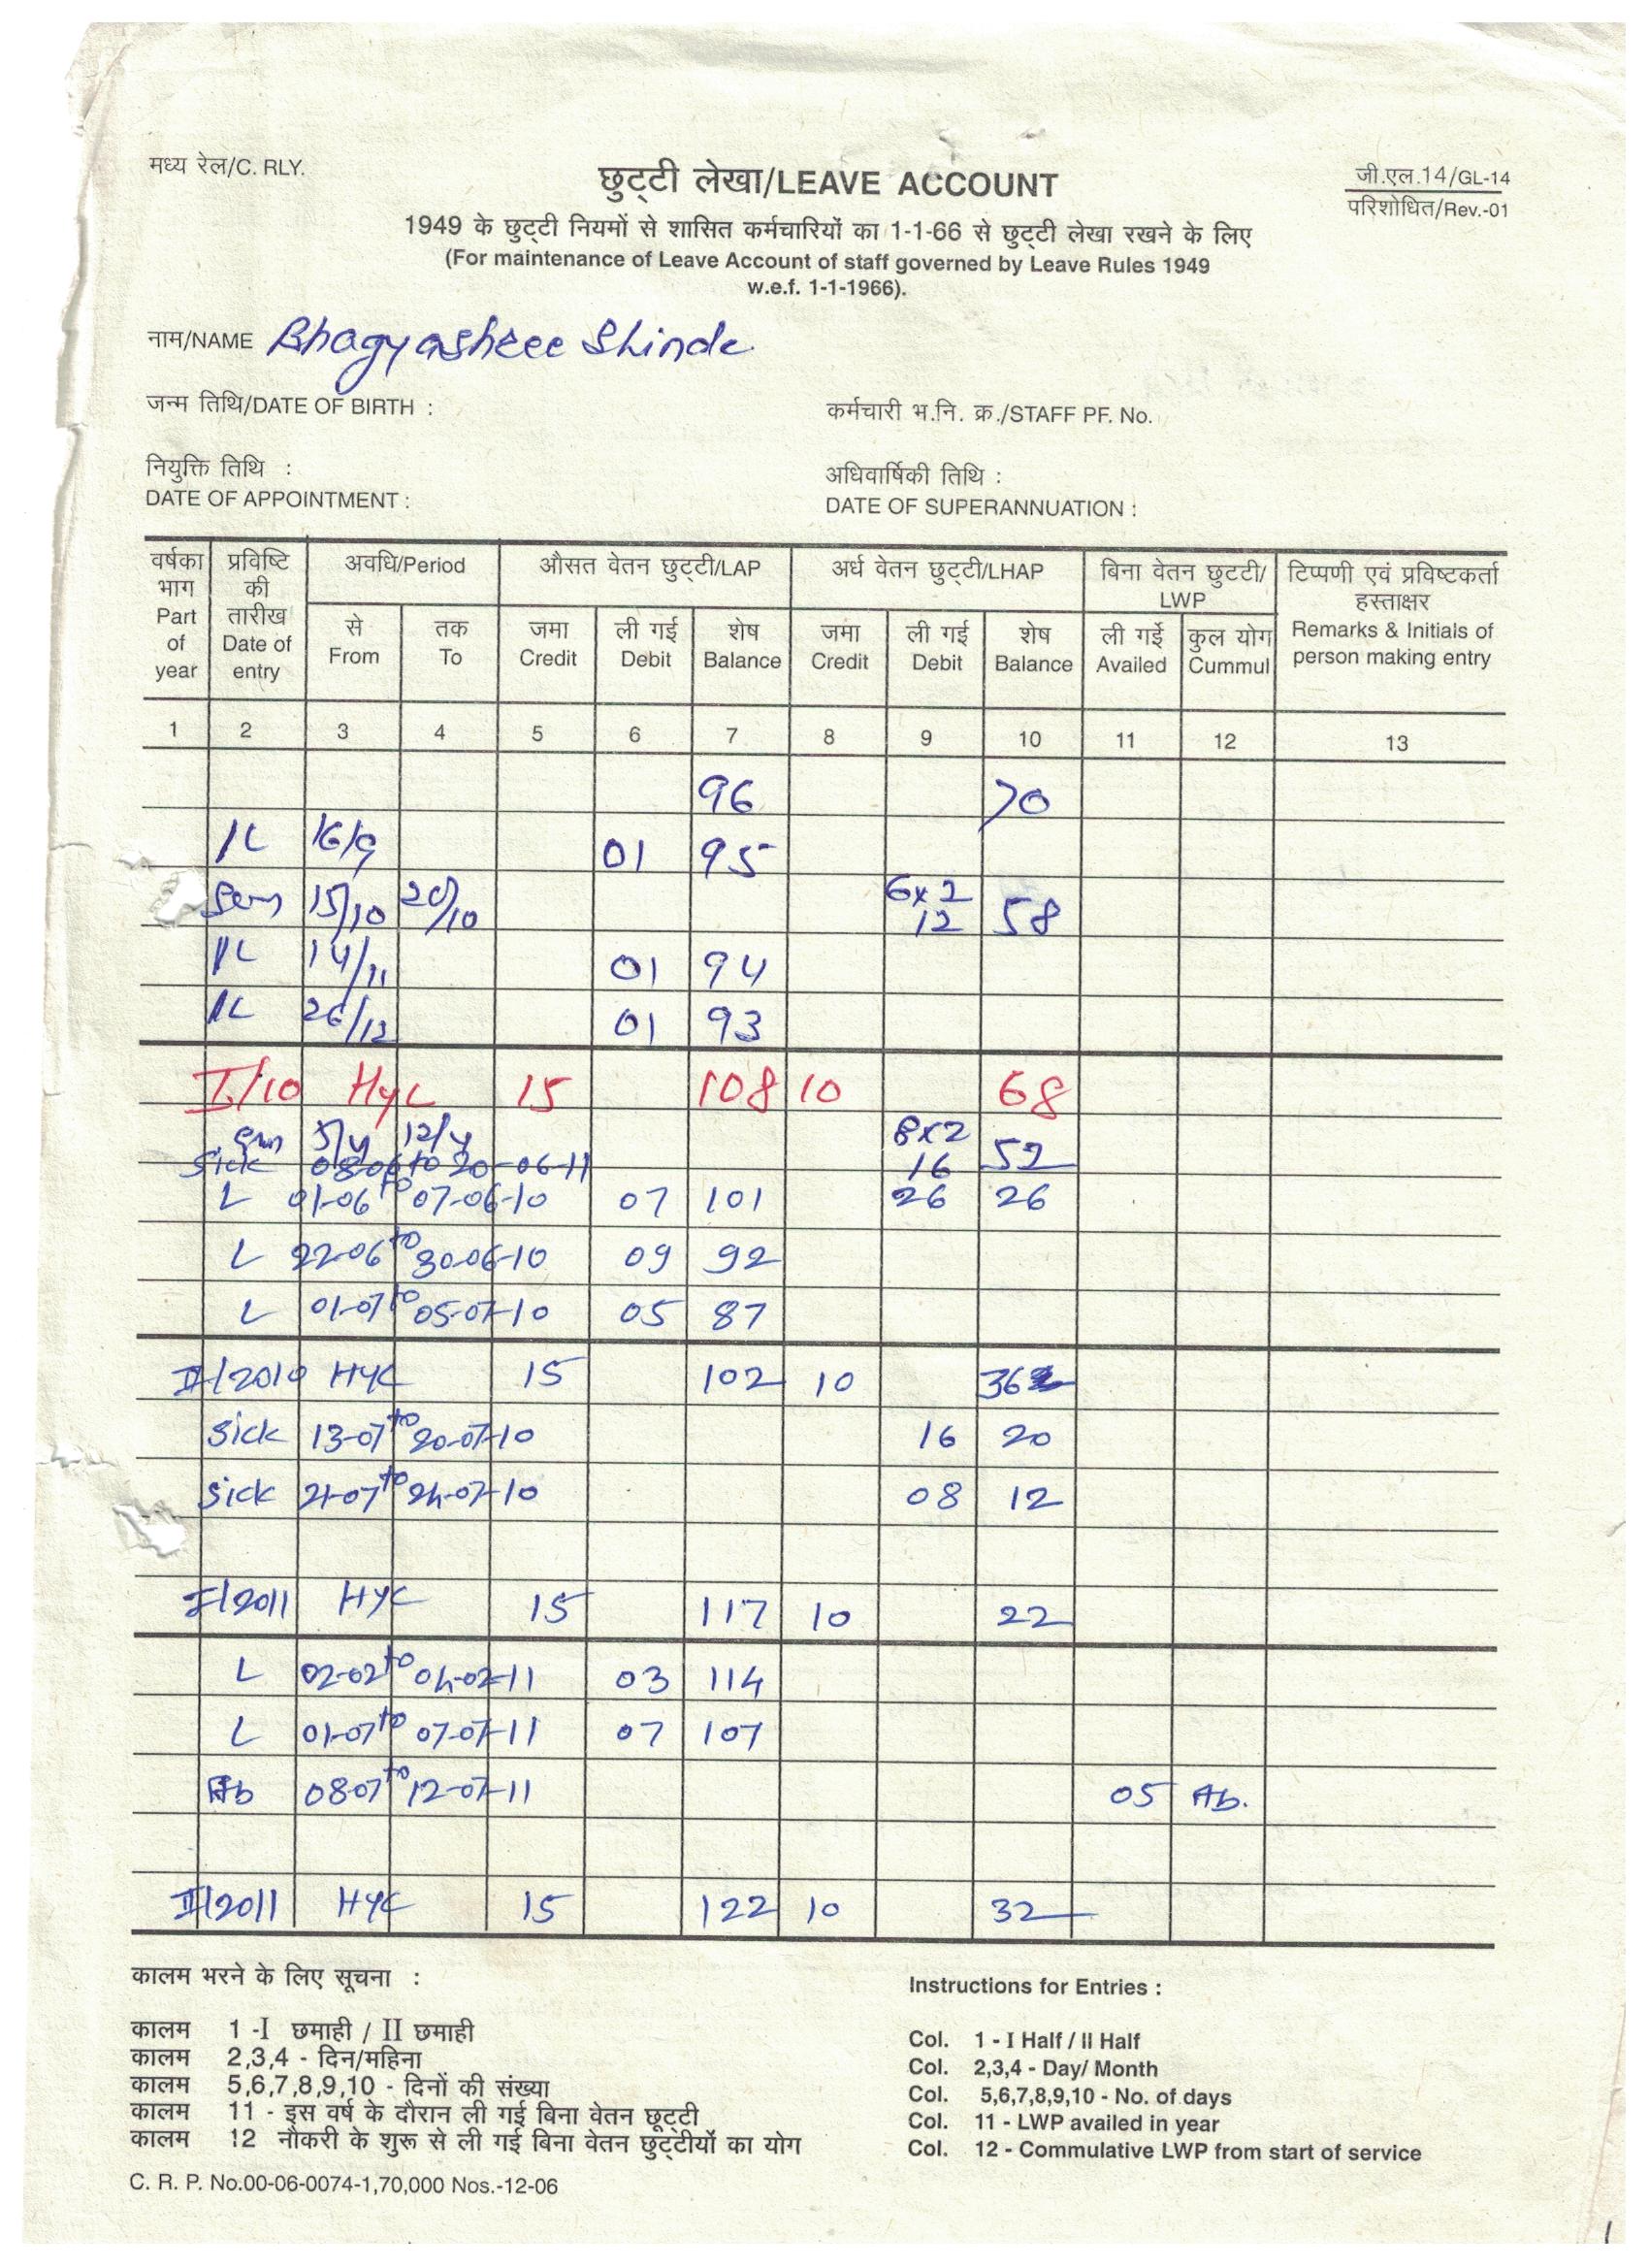 मध्य रेल/C. RLY.
छुट्टी लेखा/LEAVE ACCOUNT
जी.एल.14/GL-14
परिशोधित/Rev.-01
1949 के छुट्टी नियमों से शासित कर्मचारियों का 1-1-66 से छुट्टी लेखा रखने के लिए
(For maintenance of Leave Account of staff governed by Leave Rules 1949
w.e.f. 1-1-1966).
नाम/NAME Bhagyashree Shinde
जन्म तिथि/DATE OF BIRTH : कर्मचारी भ.नि. क्र./STAFF PF. No.
नियुक्ति तिथि : अधिवार्षिकी तिथि :
DATE OF APPOINTMENT : DATE OF SUPERANNUATION :
वर्षका भाग Part of year
प्रविष्टि की तारीख Date of entry
अवधि/Period
से From
तक To
औसत वेतन छुट्टी/LAP
जमा Credit
ली गई Debit
शेष Balance
अर्ध वेतन छुट्टी/LHAP
जमा Credit
ली गई Debit
शेष Balance
बिना वेतन छुटटी/LWP
ली गई Availed
कुल योग Cummul
टिप्पणी एवं प्रविष्टकर्ता हस्ताक्षर
Remarks & Initials of person making entry
1 2 3 4 5 6 7 8 9 10 11 12 13
96 70
16/9 01 95
15/10 20/10 6x2 12 58
14/11 01 94
26/12 01 93
I/10 HYL 15 108 10 68
5/4 12/4 8x2 16 52
Sick 08-06 to 20-06-11
L 01-06 to 07-06-10 07 101 26 26
L 22-06 to 30-06-10 09 92
L 01-07 to 05-07-10 05 87
II/2010 HYC 15 102 10 36
Sick 13-07 to 20-07-10 16 20
Sick 21-07 to 24-07-10 08 12
I/2011 HYC 15 117 10 22
L 02-02 to 04-02-11 03 114
L 01-07 to 07-07-11 07 107
Ab 08-07 to 12-07-11 05 Ab.
II/2011 HYC 15 122 10 32
कालम भरने के लिए सूचना :
कालम 1 -I छमाही / II छमाही
कालम 2,3,4 - दिन/महिना
कालम 5,6,7,8,9,10 - दिनों की संख्या
कालम 11 - इस वर्ष के दौरान ली गई बिना वेतन छूट्टी
कालम 12 नौकरी के शुरू से ली गई बिना वेतन छुट्टीयों का योग
C. R. P. No.00-06-0074-1,70,000 Nos.-12-06
Instructions for Entries :
Col. 1 - I Half / II Half
Col. 2,3,4 - Day/ Month
Col. 5,6,7,8,9,10 - No. of days
Col. 11 - LWP availed in year
Col. 12 - Commulative LWP from start of service